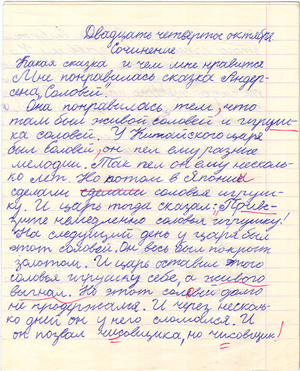 Двадцать четвертое октября
Сочинение
Какая сказка и чем мне нравится
Мне понравилась сказка Андер-
сена „Соловей".
Она понравилась тем, что
там был живой соловей и игруш-
ка соловей. У Китайского царя
был соловей, он пел ему разные
мелодии. Так пел он ему несколь-
ко лет. Но потом в Японии
сделали сделали соловья игруш-
ку. И царь тогда сказал: „Приве-
зите немедленно соловья игрушку!
На следущий день у царя был
этот соловей. Он весь был покрыт
золотом. И царь оставил этого
соловья игрушку себе, а живого
выгнал. Но этот соловей долго
не продержался. И через несколь-
ко дней он у него сломался. И
он позвал чисовщика, но чисовщик!